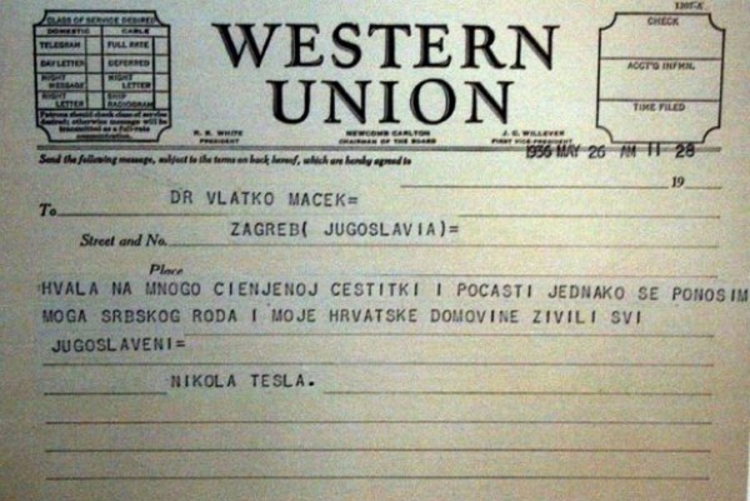 1207-A
CLASS OF SERVICE DESIRED
DOMESTIC CABLE
TELEGRAM FULL RATE
DAY LETTER DEFERRED
NIGHT MESSAGE NIGHT LETTER
NIGHT LETTER SHIP RADIOGRAM
Patrons should check class of service
desired; otherwise message will be
transmitted as a full-rate
communication.
WESTERN
UNION
R. B. WHITE
PRESIDENT
NEWCOMB CARLTON
CHAIRMAN OF THE BOARD
J. C. WILLEVER
FIRST VICE-PRESIDENT
CHECK
ACCT'G INFMN.
TIME FILED
1936 MAY 26 AM 11 28
Send the following message, subject to the terms on back hereof, which are hereby agreed to
19
To DR VLATKO MACEK=
Street and No. ZAGREB( JUGOSLAVIA)=
Place
HVALA NA MNOGO CIENJENOJ CESTITKI I POCASTI JEDNAKO SE PONOSIM
MOGA SRBSKOG RODA I MOJE HRVATSKE DOMOVINE ZIVILI SVI
JUGOSLAVENI=
NIKOLA TESLA.